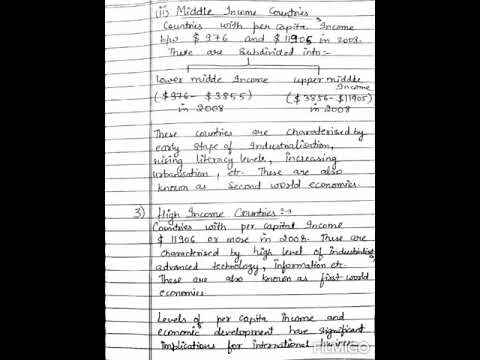 (ii) Middle Income Countries
Countries with per capita Income
b/w $ 976 and $ 11905 in 2008.
These are Subdivided into:-
lower midde Income upper middle Income
($976- $3855) ($3856-$11905)
in 2008 in 2008
These countries are charaterised by
early stage of Industralisation,
rising literacy levels, increasing
urbanisation, etc. These are also
known as Second world economies.
3) High Income Countries :→
Countries with per capital Income
$ 11906 or more in 2008. These are
characterised by high level of
advanced technology, Information etc.
These are also known as first world
economies.
Levels of per capita Income and
economic development have significant
implications for international
FILMIGO